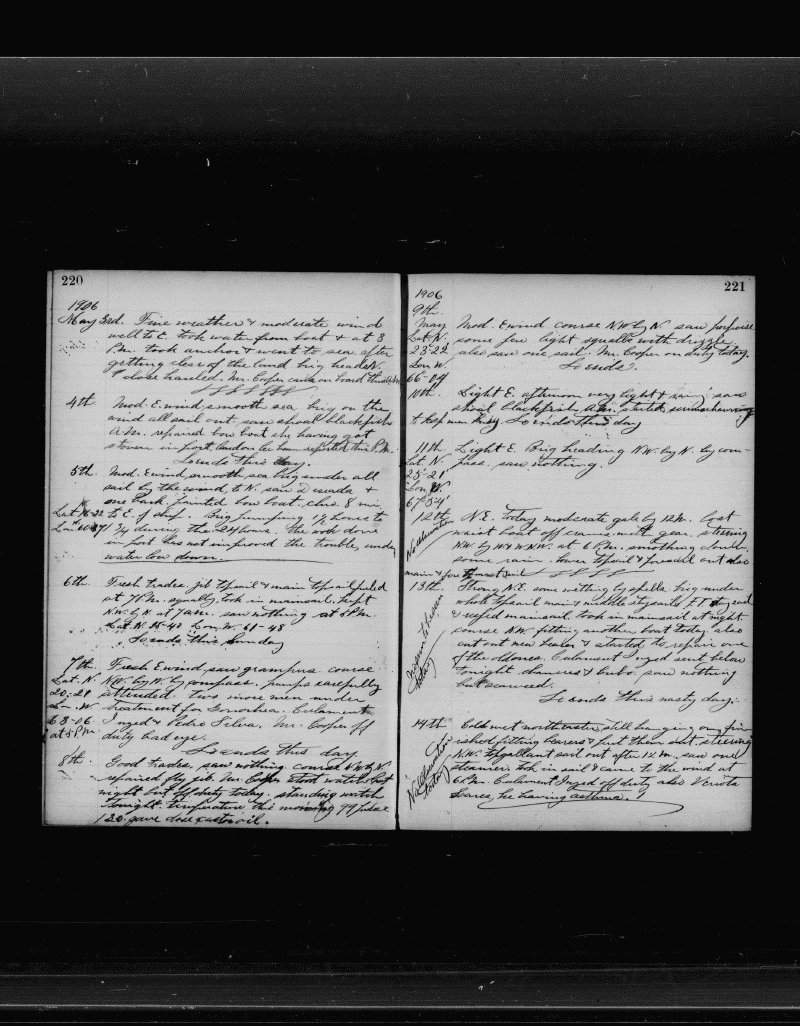 220
1906
May 3rd. Fine weather & moderate wind
well to E. took water from boat & at 3
P.M. took anchor & went to sea after
getting clear of the land brig headed N.
close hauled. Mr. Cooper came on board this
4th Mod. E wind smooth sea brig on the
wind all sail out, saw shoal blackfish
A.M. repaired bow boat she having got
stoven in port, has been reported this P.M.
So ends this day.
5th Mod. E wind, smooth sea brig under all
sail by the wind, to N. saw &
one bark, painted bow boat,
Lat 16-22 to E. of ship. Brig pumping 1/2 hours to
during the 24 hours. The work done
in port has not improved the trouble, under
water low down.
6th Fresh trades. jib topsail & main topsail furled
at 7 P.M. squally, took in mainsail. kept
N.W. by N. at 7 A.M. saw nothing at 5 P.M.
Lat. N. 18-40 Lon. W. 61-48
So ends this Sunday
7th Fresh E wind, saw grampus course
Lat. N. N.W. by N. by compass. pumps carefully
20-21 attended. two more men under
Lon. W. treatment for Gonorhea. Calamant
63-06 Inged & Pedro Silva. Mr. Cooper off
at 5 P.M. duty bad eye.
So ends this day
8th Good trades, saw nothing course N.W. by N.
repaired fly jib. Mr. Cooper stood watch last
night but off duty today. standing watch
tonight temperature this morning 99 pulse
120. gave dose castor oil.
221
1906
9th
May Mod. E wind course N.W. by N. saw porpoise
Lat. N. some few light squalls with drizzle
23-22 also saw one sail. Mr. Cooper on duty today.
Lon. W. So ends.
66-04
10th. Light E. afternoon very light & saw
shoal blackfish, A.M. started
to keep men busy. So ends this day
11th Light E. Brig heading N.W. by N. by com-
Lat. N. pass. saw nothing.
25-21
Lon. W.
67-54
12th N.E. today moderate gale by 12 M. lost
No observation waist boat off cranes with gear, steering
N.W. by W & W.N.W. at 6 P.M. smothing down
some rain. lower topsail & foresail out also
main & fore topmast sail
13th Strong N.E. some wetting by spells. brig under
whole topsail main & middle staysails F.T. stay sail
& reefed mainsail. took in mainsail at night
course N.W. fitting another boat today. also
cut out new & started to repair one
of the old ones. Calamant Inged sent below
tonight chancres & bubo. saw nothing
but seaweed.
So ends this nasty day.
14th Cold wet northeaster, still hanging on, fin-
ished fitting & put them out, steering
N.W. topgallant sail out after 12 M., saw one
steamer. took in sail & came to the wind at
6 P.M. Calamant Inged off duty also
he having asthma.